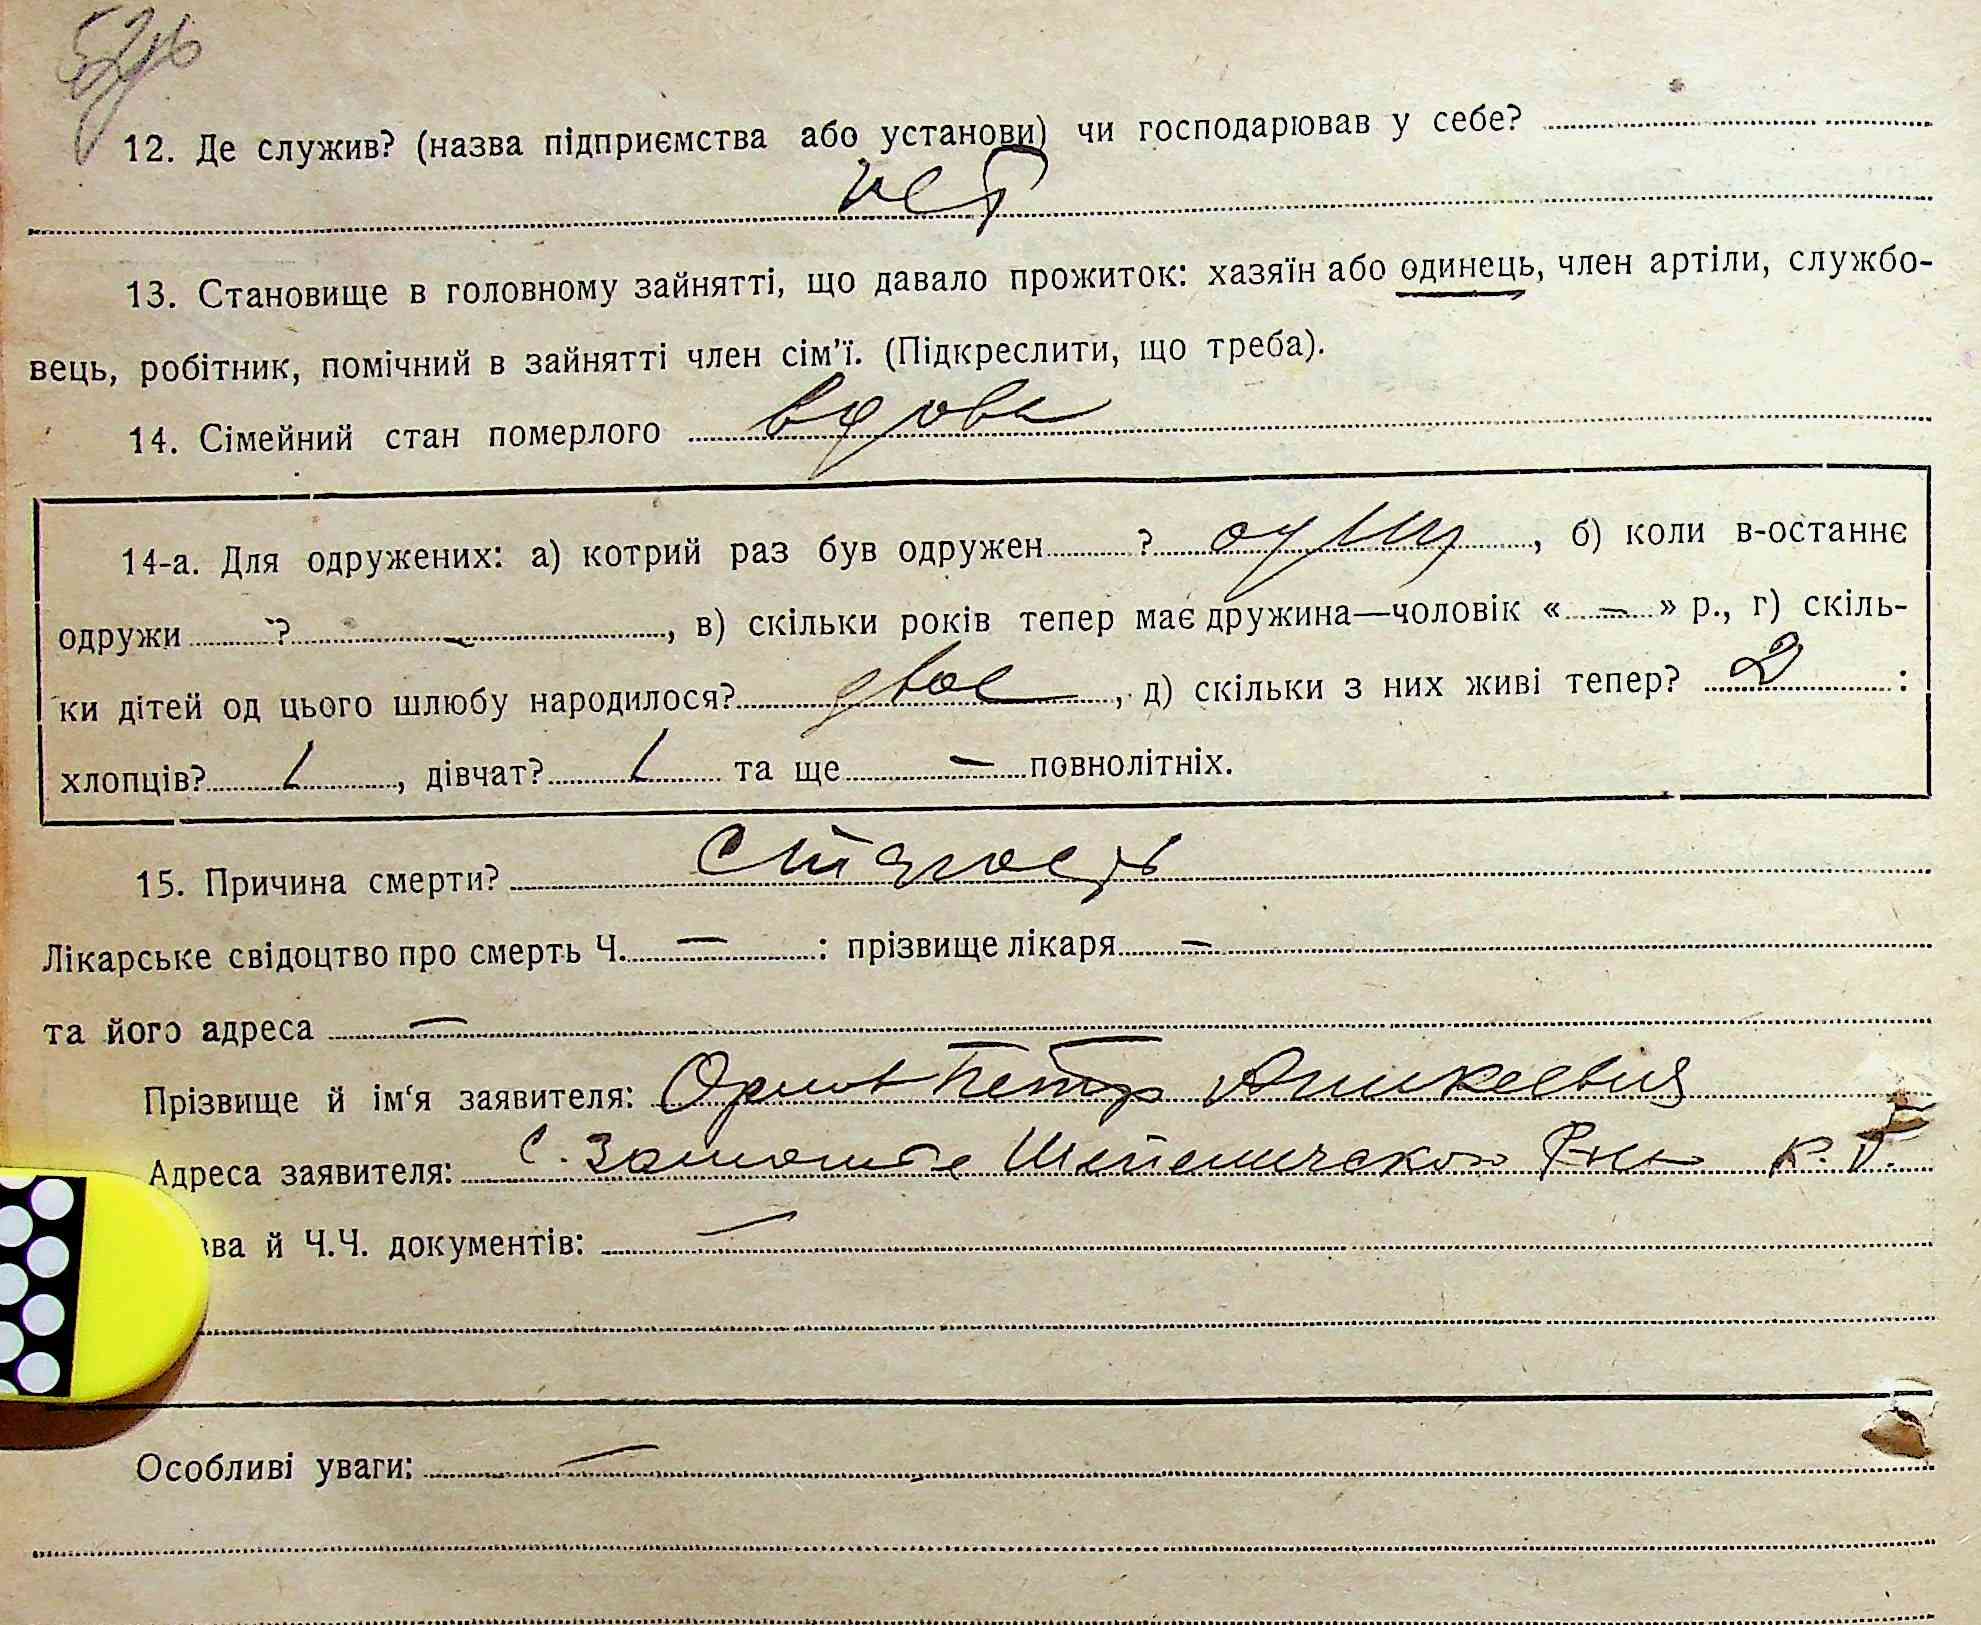 12. Де служив? (назва підприємства або установи) чи господарював у себе?
нет
13. Становище в головному зайнятті, що давало прожиток: хазяїн або одинець, член артіли, службо-
вець, робітник, помічний в зайнятті член сім’ї. (Підкреслити, що треба).
14. Сімейний стан померлого вдова
14-а. Для одружених: а) котрий раз був одружен ? один, б) коли в-останнє
одружи ? –, в) скільки років тепер має дружина—чоловік « – » р., г) скіль-
ки дітей од цього шлюбу народилося? двое, д) скільки з них живі тепер? 2 :
хлопців? 1, дівчат? 1 та ще – повнолітніх.
15. Причина смерти? Старость
Лікарське свідоцтво про смерть Ч. – : прізвище лікаря –
та його адреса –
Прізвище й ім‘я заявителя: Орлов Петр
Адреса заявителя: с. р-на
ва й Ч.Ч. документів: –
Особливі уваги: –